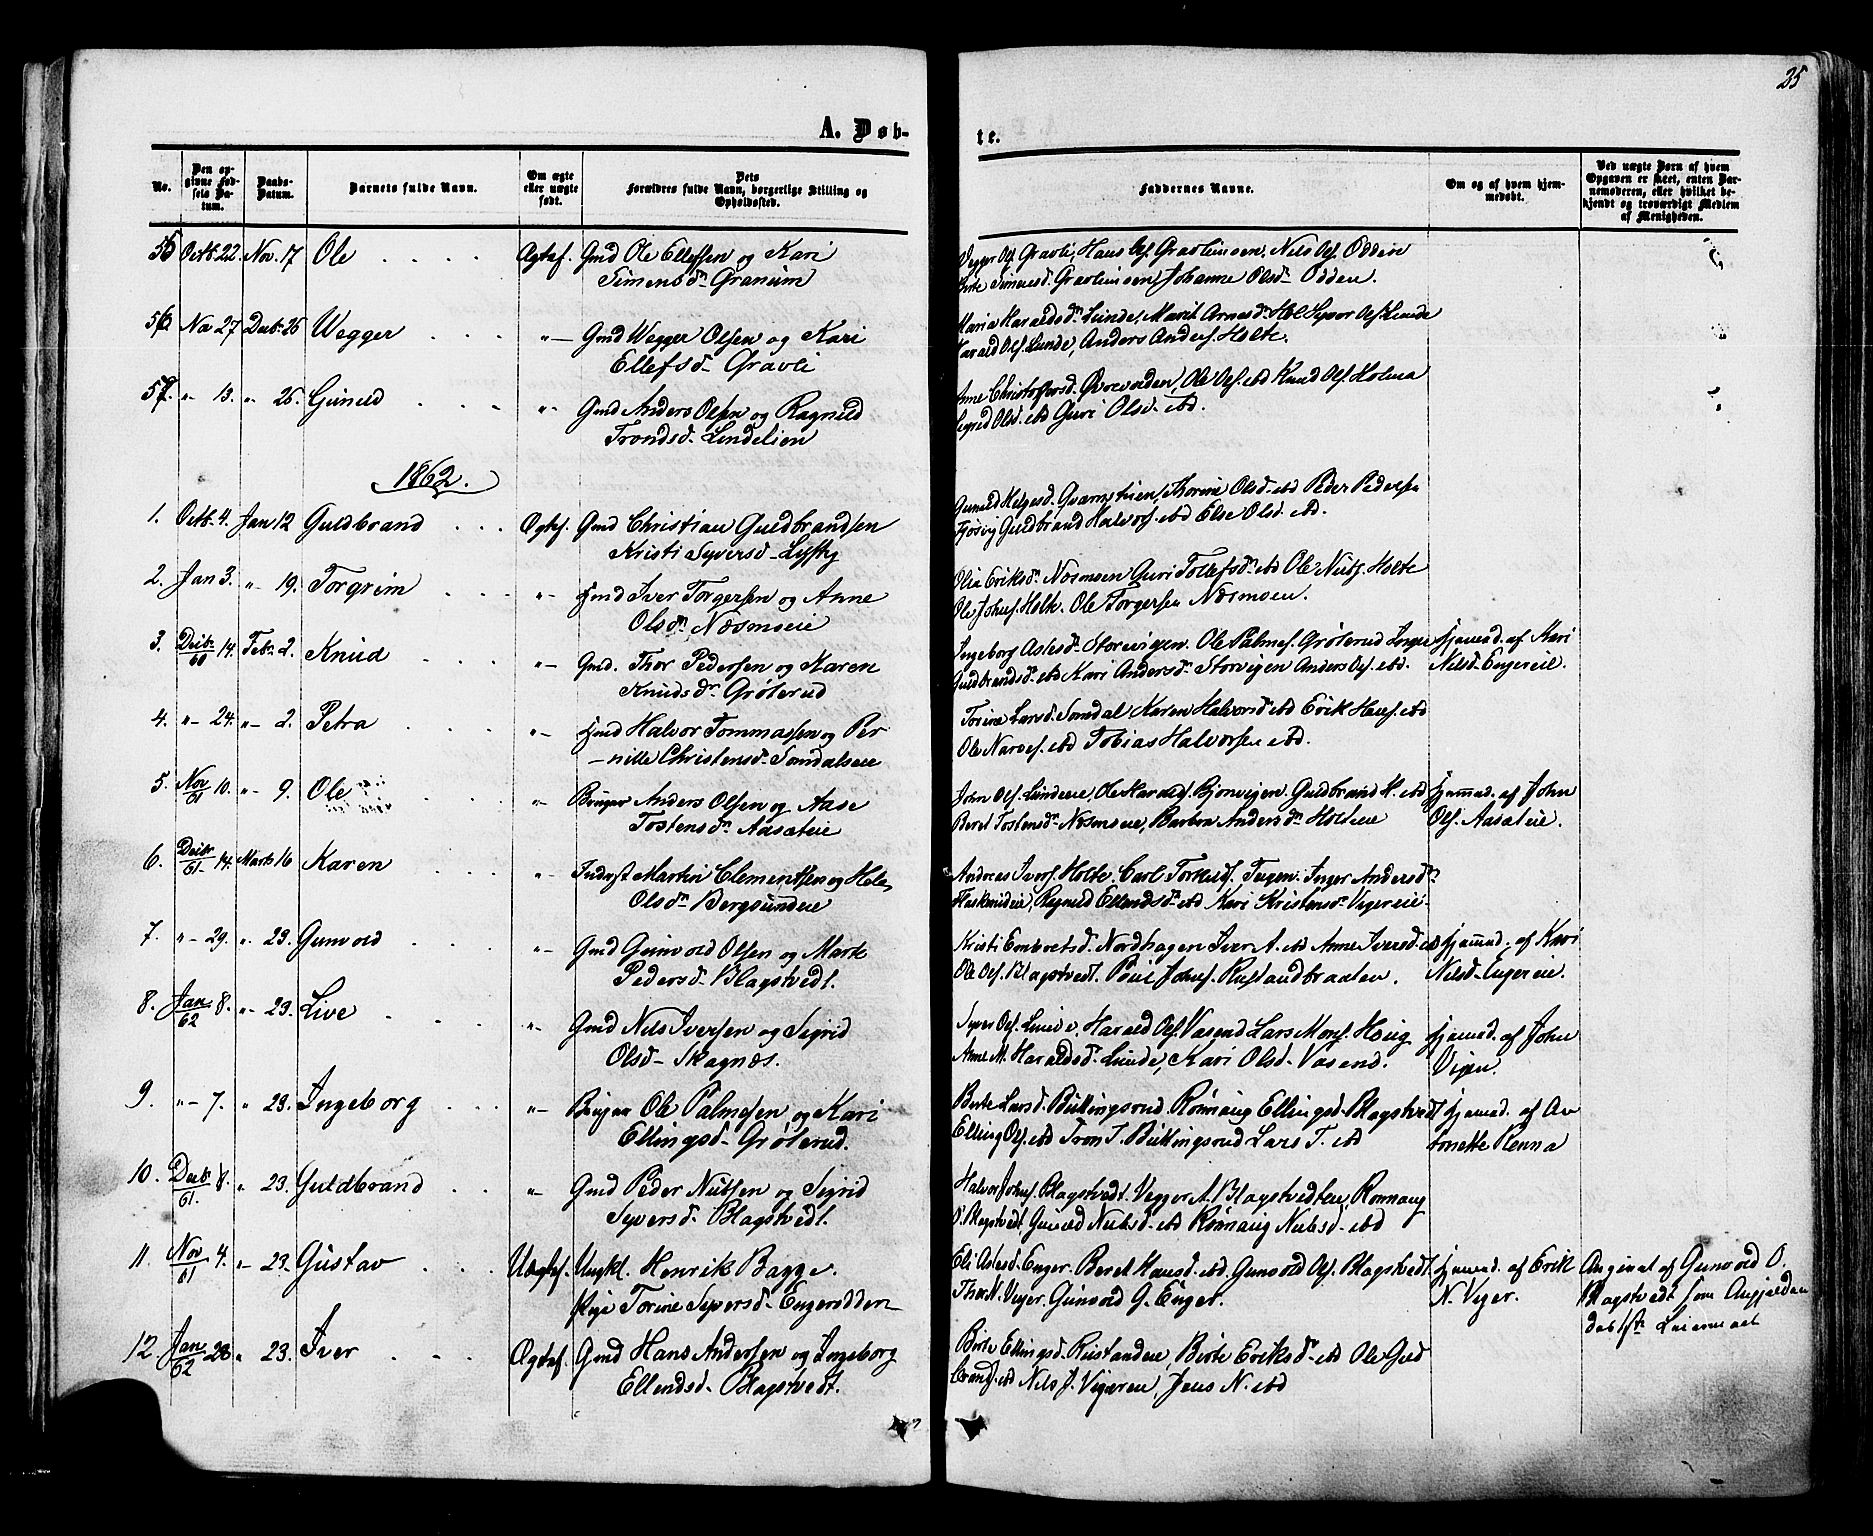 25
A. Døb-
te.
No.
Den op-
givne Fød-
sels Da-
tum.
Daabs-
Datum.
Barnets fulde Navn.
Om ægte
eller uægte
født.
Dets
Forældres fulde Navn, borgerlige Stilling og
Opholdssted.
Faddernes Navne.
Om og af hvem hjem-
medøbt.
Ved uægte Børn af hvem
Opgaven er skeet, enten Bar-
nemoderen, eller hvilket be-
kjendt og troværdigt Medlem
af Menigheden.
55 Octb. 22. Nov. 17 Ole Ægtef. Gmd Ole Ellefsen og Kari
Simensd. Granum
Vegger Ols. Gravli, Hans Ols. Gravlimoen, Nils Ols. Odden
Birte Simensd. Gravlimoen, Johanne Olsd. Odden.
56 No 27 Decb. 26 Wegger "- Gmd Wegger Olsen og Kari
Ellefsd. Gravli
Maria Haraldsd. Lunde, Marit Arnesd. Hol Syver Ols. Lunde
Harald Ols. Lunde, Anders Anders. Holte.
57. "- 13. "- 26. Gunild "- Gmd Anders Olsen og Ragnild
Trondsd. Lindelien
Anne Christofersd. Øvrevolden, Ole Ols. ibd Knud Ols. Holma
Sigrid Olsd. ibd Guri Olsd. ibd.
1862.
1. Octb. 4. Jan 12 Guldbrand Ægtef. Gmd Christian Guldbrandsen
Kristi Syversd.
Gunild Helgesd. Thorine Olsd. ibd Peder Pedersen
Guldbrand Halvors. ibd Else Olsd. ibd.
2. Jan 3. "- 19. Torgrim "- Gmd Iver Torgersen og Anne
Olsd. Næsmoeie
Olia Eriksd. Næsmoen Guri Tollefsd. ibd Ole Nils. Holte
Ole Johns. Holte. Ole Torgersen Næsmoen.
3. Decb. 60 14. Feb. 2. Knud "- Gmd. Thor Pedersen og Karen
Knudsd. Grøterud
Ingeborg Aslesd. Storevigen. Ole Palmes. Grøterud Inger
Guldbrandsd. ibd Kari Andersd. Storvigen Anders Ols. ibd.
Hjemd. af Kari
Nilsd. Engereie.
4. "- 24. "- 2. Petra "- Gmd Halvor Tommassen og Per
-nille Christensd. Sandalseie
Torine Larsd. Sandal Karen Halvorsd. ibd Erik Hans. ibd
Ole Narves. ibd Tobias Halvorsen ibd.
5. Nov 61 10. "- 9. Ole "- Bruger Anders Olsen og Aase
Tostensd. Aasateie
John Ols. Lundeeie, Ole Harald. Bjonvigen. Guldbrand H. ibd
Beret Tostensd. Næsmoeie, Barbra Andersd. Holteie
Hjemd. af John
Ols. Aasateie.
6. Decb. 61 14. Marts 16 Karen "- Inderst Martin Clementsen og Hele
Olsd. Bergsundeie
Andreas Ivers. Holte. Carl Torkild. Inger Andersd.
Ragnild Ellendsd. ibd Kari Kristensd. Vigereie
7. "- 29. "- 23. Gunvold "- Gmd Gunvold Olsen og Marte
Pedersd. Blagstvedt.
Kristi Embretsd. Nordhagen Iver A. ibd Anne Iversd. ibd
Ole Ols. Blagstvedt. Poul Johns. Rustandbraaten.
Hjemd. af Kari
Nilsd. Engereie.
8. Jan 62 8. "- 23. Live "- Gmd Nils Iversen og Sigrid
Olsd. Skagnæs.
Syver Ols. Lunde, Harald Ols. Vasend Lars Mons. Haug
Anne M. Haraldsd. Lunde, Kari Olsd. Vasend.
Hjemd. af John
Vigen.
9. "- 7. " 23. Ingeborg "- Bruger Ole Palmesen og Kari
Ellingsd. Grøterud.
Berte Larsd. Buttingsrud. Rønnaug Ellingsd. Blagstvedt
Elling Ols. ibd Tron T. Buttingsrud Lars T. ibd
Hjemd. af An
tonette Renna
10. Decb. 61. 8. " 23. Guldbrand "- Gmd Peder Nilsen og Sigrid
Syversd. Blagstvedt.
Halvor Johns. Blagstvedt. Vegger A. Blagstvedteie, Rønnaug
O. Blagstvedt, Gunild Nielsd. ibd Rønnaug Nielsd. ibd
11. Nov 61 4. "- 23. Gustav Uægtef. Ungkl. Henrik Bagge.
Pige Torine Syversd. Engerodden
Eli Aslesd. Enger. Beret Hansd. ibd. Gunvold Ols. Blagstvedt.
Thor N. Veger. Gunvold G. Enger.
Hjemd. af Erik
N. Veger.
Angivet af Gunvold O.
Blagstvedt som
12. Jan 62 28 " 23. Iver Ægtef. Gmd Hans Andersen og Ingeborg
Ellendsd. Blagstvedt.
Birte Ellingsd. Rustandeie, Birte Eriksd. ibd Ole Guld
brands. ibd Nils J. Jens N. ibd